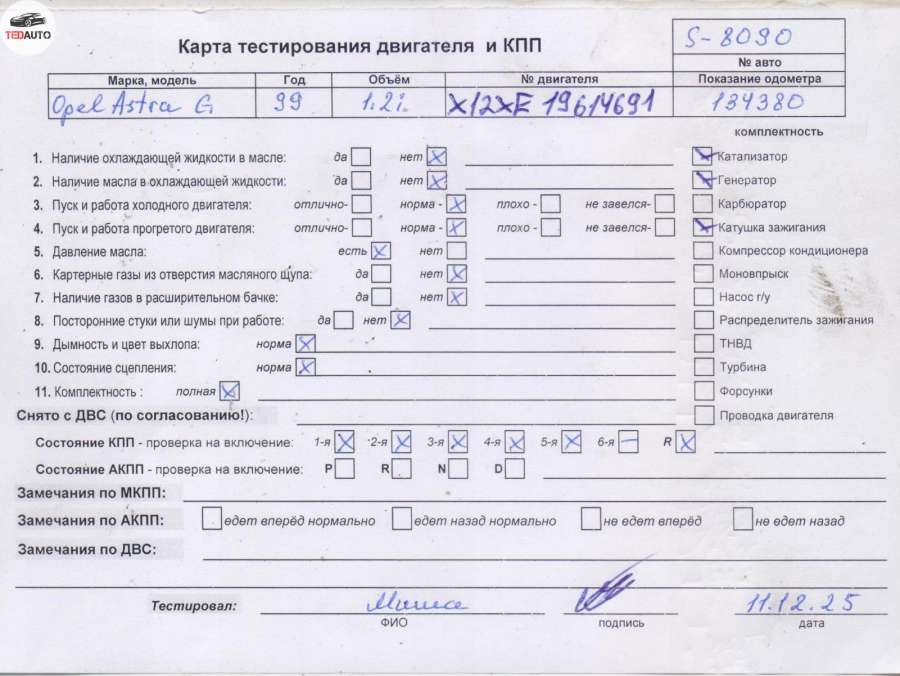 TEDAUTO
Карта тестирования двигателя и КПП
S-8090
№ авто
Марка, модель Год Объём № двигателя Показание одометра
Opel Astra G 99 1.2i X12XE 19614691 134380
комплектность
1. Наличие охлаждающей жидкости в масле: да нет Катализатор
2. Наличие масла в охлаждающей жидкости: да нет Генератор
3. Пуск и работа холодного двигателя: отлично- норма - плохо - не завелся- Карбюратор
4. Пуск и работа прогретого двигателя: отлично- норма - плохо - не завелся- Катушка зажигания
5. Давление масла: есть нет Компрессор кондиционера
6. Картерные газы из отверстия масляного щупа: да нет Моновпрыск
7. Наличие газов в расширительном бачке: да нет Насос г/у
8. Посторонние стуки или шумы при работе: да нет Распределитель зажигания
9. Дымность и цвет выхлопа: норма ТНВД
10. Состояние сцепления: норма Турбина
11. Комплектность : полная Форсунки
Снято с ДВС (по согласованию!): Проводка двигателя
Состояние КПП - проверка на включение: 1-я 2-я 3-я 4-я 5-я 6-я R
Состояние АКПП - проверка на включение: P R N D
Замечания по МКПП:
Замечания по АКПП: едет вперёд нормально едет назад нормально не едет вперёд не едет назад
Замечания по ДВС:
Тестировал: Миша 11.12.25
ФИО подпись дата